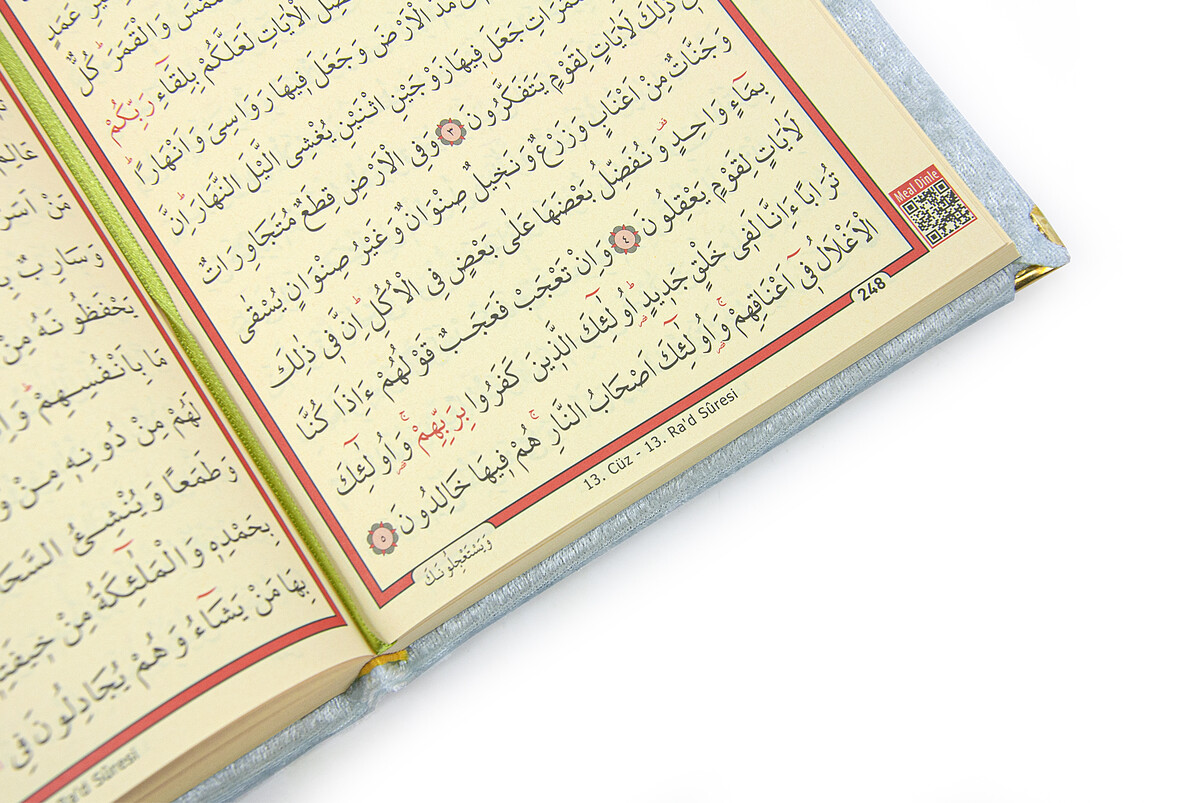 عَمَدٍ
وَالْقَمَرَۜ كُلٌّ
الْاٰيَاتِ لَعَلَّكُمْ بِلِقَٓاءِ رَبِّكُمْ
مَدَّ الْاَرْضَ وَجَعَلَ فِيهَا رَوَاسِىَ وَاَنْهَارًاۜ
جَعَلَ فِيهَا زَوْجَيْنِ اثْنَيْنِ يُغْشِى الَّيْلَ النَّهَارَۜ اِنَّ
ذٰلِكَ لَاٰيَاتٍ لِقَوْمٍ يَتَفَكَّرُونَ ٣ وَفِى الْاَرْضِ قِطَعٌ مُتَجَاوِرَاتٌ
وَجَنَّاتٌ مِنْ اَعْنَابٍ وَزَرْعٌ وَنَخِيلٌ صِنْوَانٌ وَغَيْرُ صِنْوَانٍ يُسْقٰى
بِمَٓاءٍ وَاحِدٍ وَنُفَضِّلُ بَعْضَهَا عَلٰى بَعْضٍ فِى الْاُكُلِۜ اِنَّ فِى ذٰلِكَ
لَاٰيَاتٍ لِقَوْمٍ يَعْقِلُونَ ٤ وَاِنْ تَعْجَبْ فَعَجَبٌ قَوْلُهُمْ ءَاِذَا كُنَّا
تُرَابًا ءَاِنَّا لَفِى خَلْقٍ جَدِيدٍۜ اُو۬لٰٓئِكَ الَّذِينَ كَفَرُوا بِرَبِّهِمْۚ وَاُو۬لٰٓئِكَ
الْاَغْلَالُ فِٓى اَعْنَاقِهِمْۚ وَاُو۬لٰٓئِكَ اَصْحَابُ النَّارِۚ هُمْ فِيهَا خَالِدُونَ ٥
وَيَسْتَعْجِلُونَكَ
Meal Dinle
248
13. Cüz - 13. Ra'd Sûresi
عَالِمُ
مَنْ اَسَرَّ
وَسَارِبٌ
يَحْفَظُونَهُ مِنْ
مَا بِاَنْفُسِهِمْۜ
لَهُمْ مِنْ دُونِهِ مِنْ
وَطَمَعًا وَيُنْشِئُ
بِحَمْدِهِ وَالْمَلٰٓئِكَةُ مِنْ
بِهَا مَنْ يَشَٓاءُ وَهُمْ يُجَادِلُونَ فِى
Ra'd Sûresi